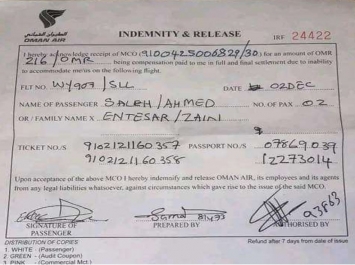 الطيران العماني
OMAN AIR
INDEMNITY & RELEASE
IRF 24422
I hereby acknowledge receipt of MCO (9100425006829/30) for an amount of OMR
216/OMR being compensation paid to me in full and final settlement due to inability
to accommodate me/us on the following flight.
FLT NO. WY907/SLL DATE 02DEC
NAME OF PASSENGER SALEH/AHMED NO. OF PAX 02
OR / FAMILY NAME X ENTESAR/ZAINI
TICKET NO./S 9102121160357 PASSPORT NO./S 07869039
9102121160358 12273014
Upon acceptance of the above MCO I hereby indemnify and release OMAN AIR, its employees and its agents
from any legal liabilities whatsoever, against circumstances which gave rise to the issue of the said MCO.
SIGNATURE OF PASSENGER
PREPARED BY
AUTHORISED BY
DISTRIBUTION OF COPIES
Refund after 7 days from date of issue
1. WHITE - (Passenger)
2. GREEN - (Audit Coupon)
3. PINK - (Commercial Mct.)